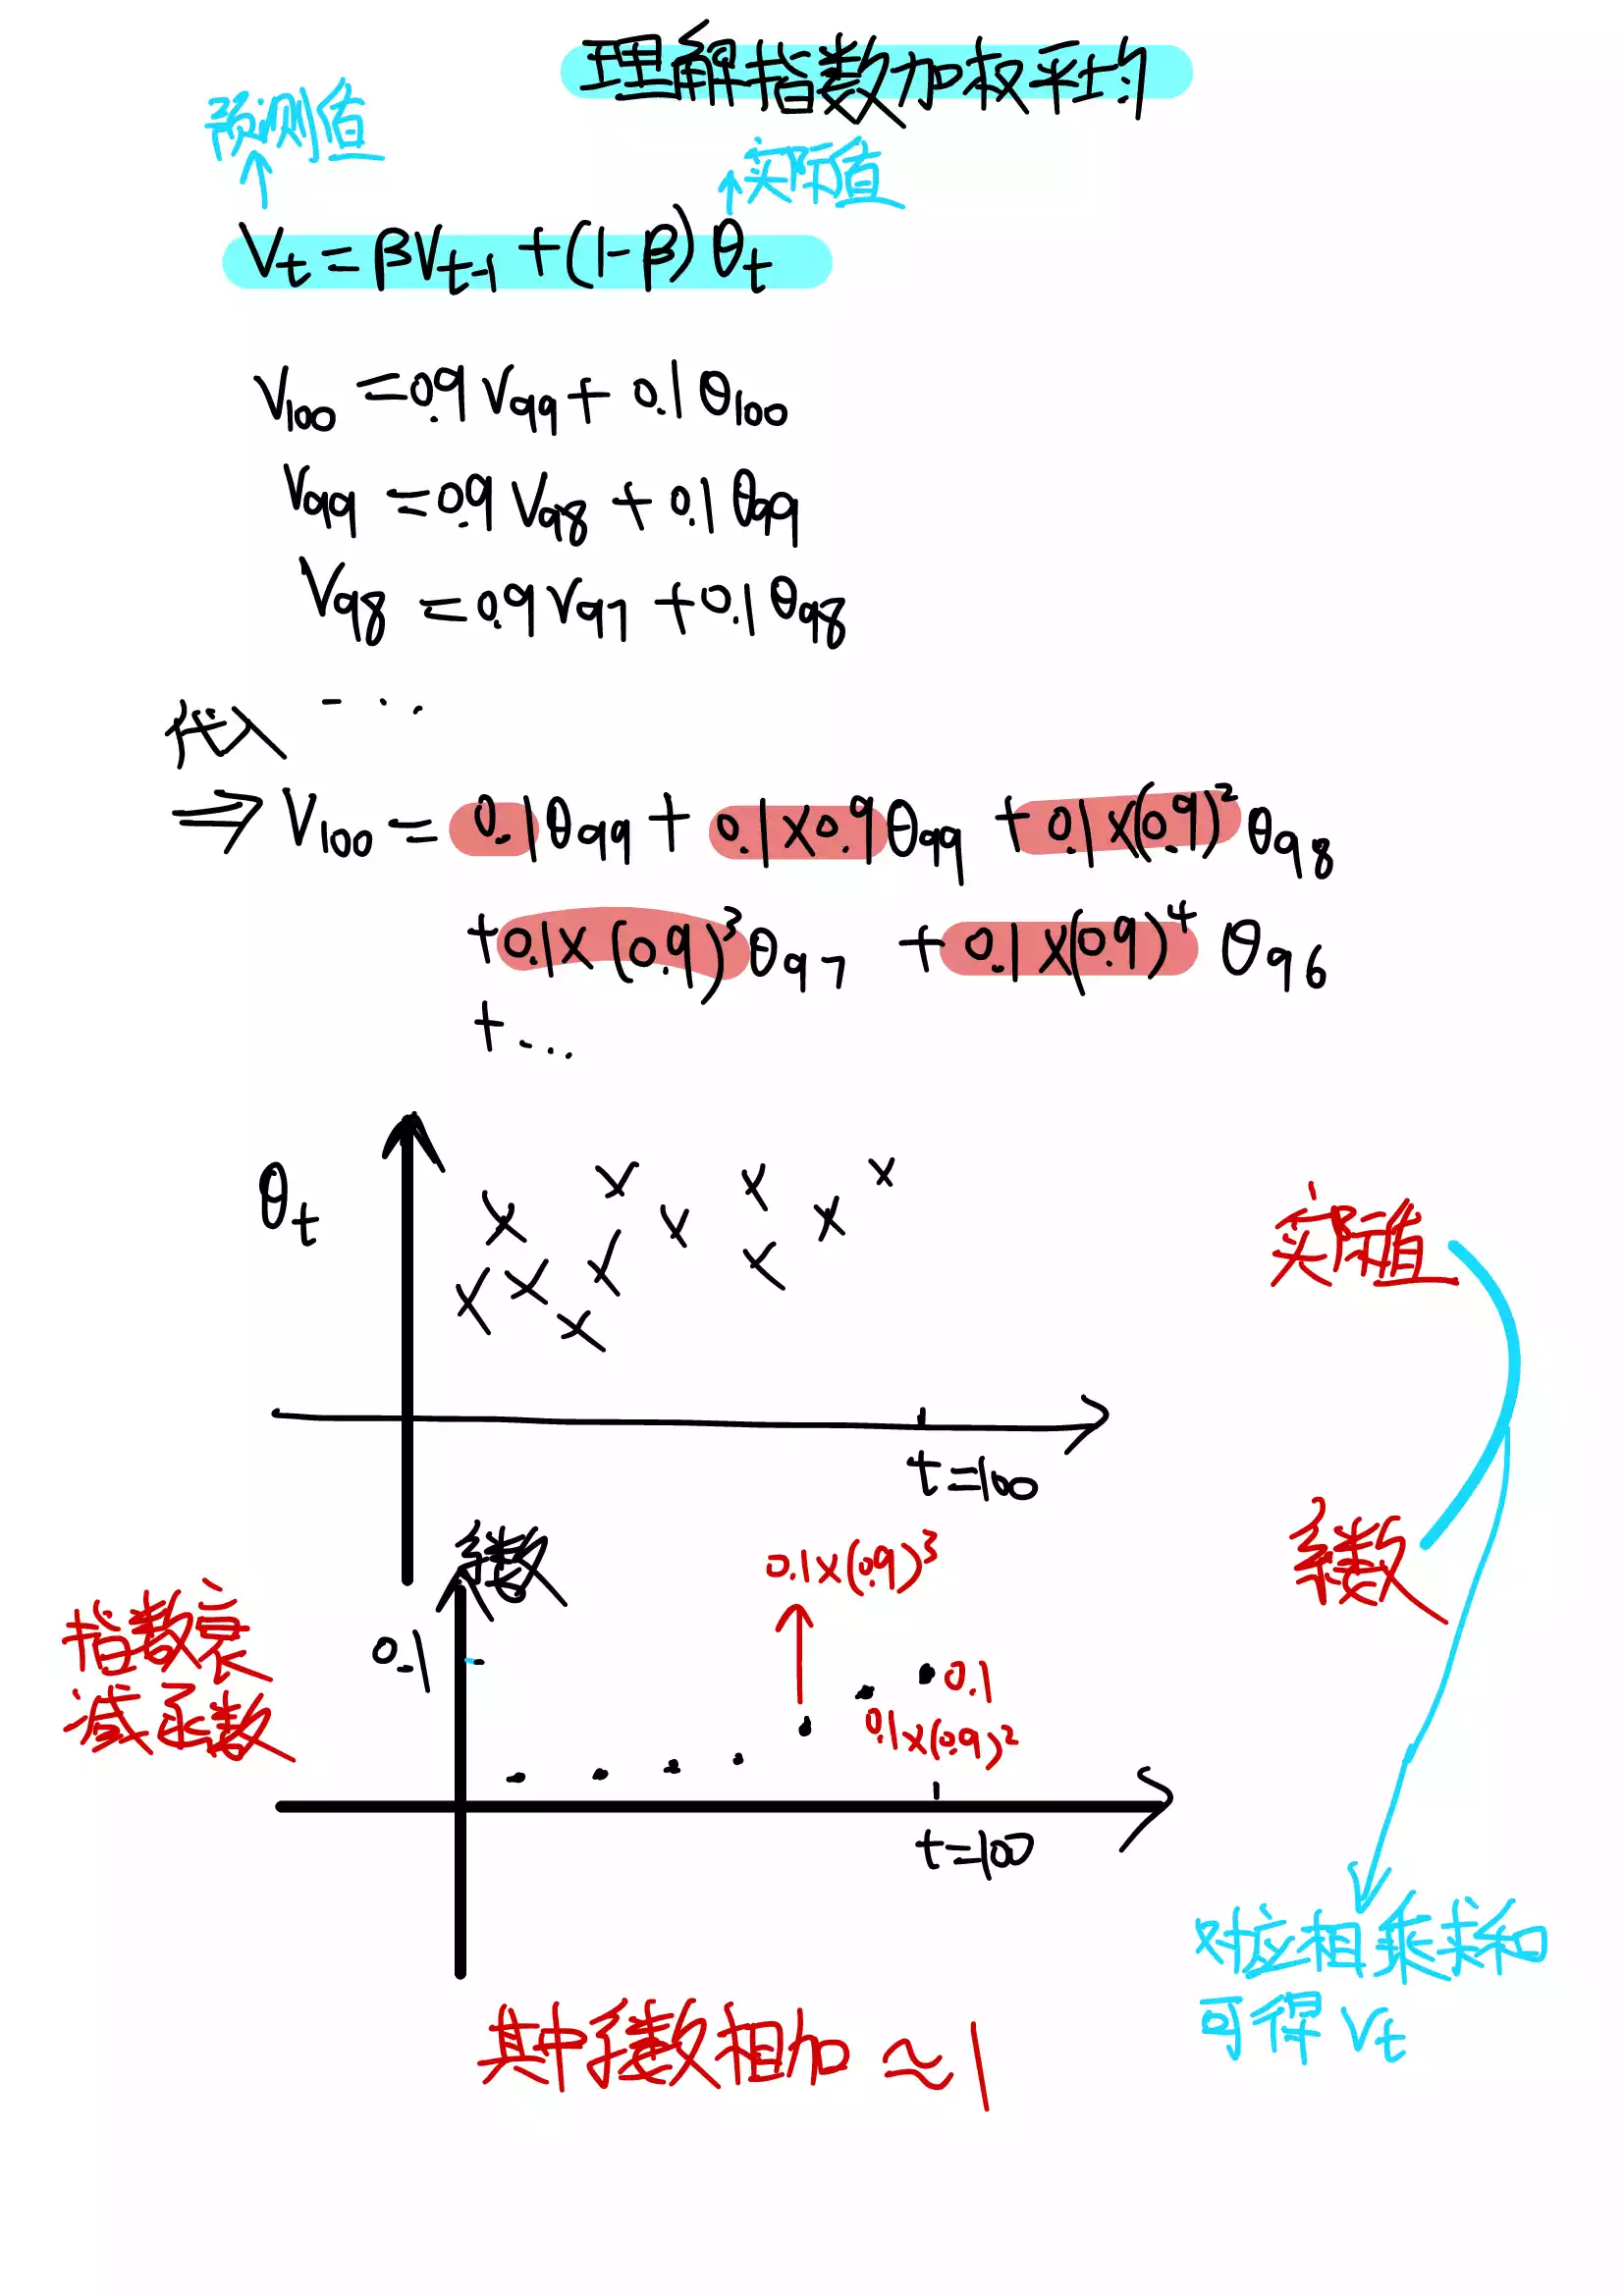 理解指数加权平均
预测值
实际值
Vt = βVt-1 + (1-β)θt
V100 = 0.9V99 + 0.1θ100
V99 = 0.9V98 + 0.1θ99
V98 = 0.9V97 + 0.1θ98
...
代入
⇒ V100 = 0.1θ99 + 0.1×0.9θ99 + 0.1×(0.9)²θ98
+ 0.1×(0.9)³θ97 + 0.1×(0.9)⁴θ96
+ ...
θt
实际值
t=100
系数
0.1×(0.9)³
系数
指数衰
减函数
0.1
0.1
0.1×(0.9)²
t=100
对应相乘求和
可得Vt
其中系数相加≈1